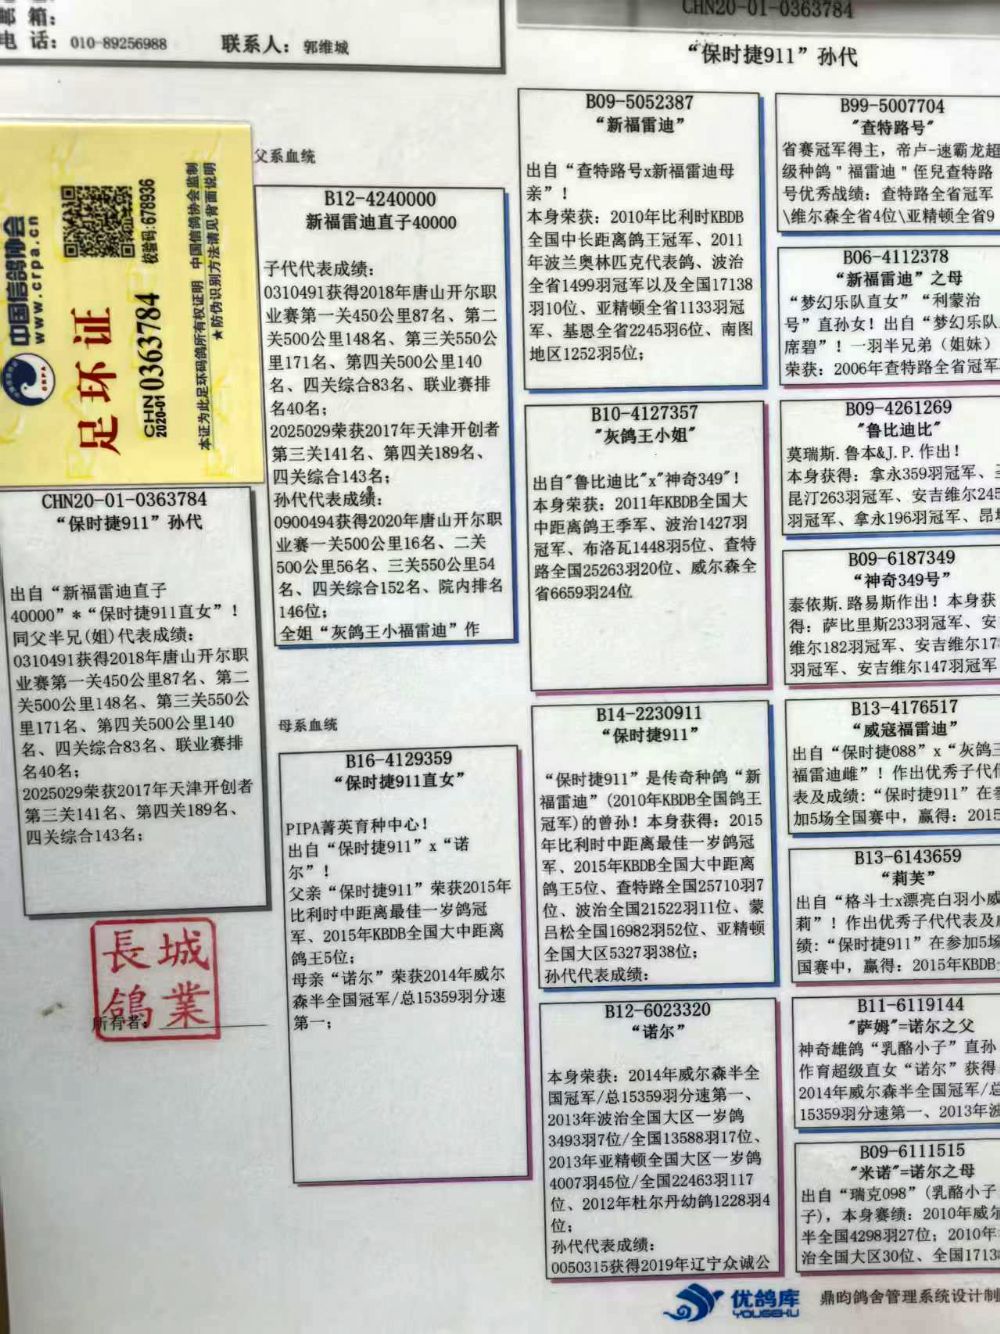 邮 箱:
电 话: 010-89256988
联系人: 郭维城
CHN20-01-0363784
“保时捷911”孙代
中国信鸽协会
www.crpa.cn
CRPA
足环证
CHN
2020-01 0363784
校验码: 678936
本证为此足环码鸽所有权证明 中国信鸽协会监制
★防伪识别方法请见背面说明
CHN20-01-0363784
“保时捷911”孙代
出自“新福雷迪直子
40000”*“保时捷911直女”!
同父半兄(姐)代表成绩:
0310491获得2018年唐山开尔职
业赛第一关450公里87名、第二
关500公里148名、第三关550公
里171名、第四关500公里140
名、四关综合83名、联业赛排
名40名;
2025029荣获2017年天津开创者
第三关141名、第四关189名、
四关综合143名;
長城
鴿業
所有者:
父系血统
B12-4240000
新福雷迪直子40000
子代代表成绩:
0310491获得2018年唐山开尔职
业赛第一关450公里87名、第二
关500公里148名、第三关550公
里171名、第四关500公里140
名、四关综合83名、联业赛排
名40名;
2025029荣获2017年天津开创者
第三关141名、第四关189名、
四关综合143名;
孙代代表成绩:
0900494获得2020年唐山开尔职
业赛一关500公里16名、二关
500公里56名、三关550公里54
名、四关综合152名、院内排名
146位;
全姐“灰鸽王小福雷迪”作
母系血统
B16-4129359
“保时捷911直女”
PIPA菁英育种中心!
出自“保时捷911”x“诺
尔”!
父亲“保时捷911”荣获2015年
比利时中距离最佳一岁鸽冠
军、2015年KBDB全国大中距离
鸽王5位;
母亲“诺尔”荣获2014年威尔
森半全国冠军/总15359羽分速
第一;
B09-5052387
“新福雷迪”
出自“查特路号x新福雷迪母
亲”!
本身荣获: 2010年比利时KBDB
全国中长距离鸽王冠军、2011
年波兰奥林匹克代表鸽、波治
全省1499羽冠军以及全国17138
羽10位、亚精顿全省1133羽冠
军、基恩全省2245羽6位、南图
地区1252羽5位;
B10-4127357
"灰鸽王小姐"
出自"鲁比迪比"x"神奇349"!
本身荣获: 2011年KBDB全国大
中距离鸽王季军、波治1427羽
冠军、布洛瓦1448羽5位、查特
路全国25263羽20位、威尔森全
省6659羽24位
B14-2230911
“保时捷911”
“保时捷911”是传奇种鸽“新
福雷迪”(2010年KBDB全国鸽王
冠军)的曾孙!本身获得: 2015
年比利时中距离最佳一岁鸽冠
军、2015年KBDB全国大中距离
鸽王5位、查特路全国25710羽7
位、波治全国21522羽11位、蒙
吕松全国16982羽52位、亚精顿
全国大区5327羽38位;
孙代代表成绩:
B12-6023320
“诺尔”
本身荣获: 2014年威尔森半全
国冠军/总15359羽分速第一、
2013年波治全国大区一岁鸽
3493羽7位/全国13588羽17位、
2013年亚精顿全国大区一岁鸽
4007羽45位/全国22463羽117
位、2012年杜尔丹幼鸽1228羽4
位;
孙代代表成绩:
0050315获得2019年辽宁众诚公
B99-5007704
"查特路号"
省赛冠军得主, 帝卢-速霸龙超
级种鸽"福雷迪"侄兒查特路
号优秀战绩: 查特路全省冠军
\维尔森全省4位\亚精顿全省9
B06-4112378
“新福雷迪”之母
“梦幻乐队直女”“利蒙治
号”直孙女!出自“梦幻乐队
席碧”!一羽半兄弟(姐妹)
荣获: 2006年查特路全省冠军
B09-4261269
"鲁比迪比"
莫瑞斯.鲁本&J.P.作出!
本身获得: 拿永359羽冠军、
昆汀263羽冠军、安吉维尔245
羽冠军、拿永196羽冠军、昂
B09-6187349
“神奇349号”
泰依斯.路易斯作出!本身获
得: 萨比里斯233羽冠军、安
维尔182羽冠军、安吉维尔173
羽冠军、安吉维尔147羽冠军
B13-4176517
“威寇福雷迪”
出自“保时捷088”x“灰鸽王
福雷迪雌”!作出优秀子代代
表及成绩:“保时捷911”在参
加5场全国赛中, 赢得: 2015
B13-6143659
“莉芙”
出自“格斗士x漂亮白羽小威
莉”!作出优秀子代代表及成
绩:“保时捷911”在参加5场
国赛中, 赢得: 2015年KBDB
B11-6119144
"萨姆"=诺尔之父
神奇雄鸽“乳酪小子”直孙
作育超级直女“诺尔”获得
2014年威尔森半全国冠军/总
15359羽分速第一、2013年波
B09-6111515
"米诺"=诺尔之母
出自“瑞克098”(乳酪小子
子), 本身赛绩: 2010年威尔
半全国4298羽27位; 2010年
治全国大区30位、全国17138
优鸽库
YOUGEKU
鼎昀鸽舍管理系统设计制